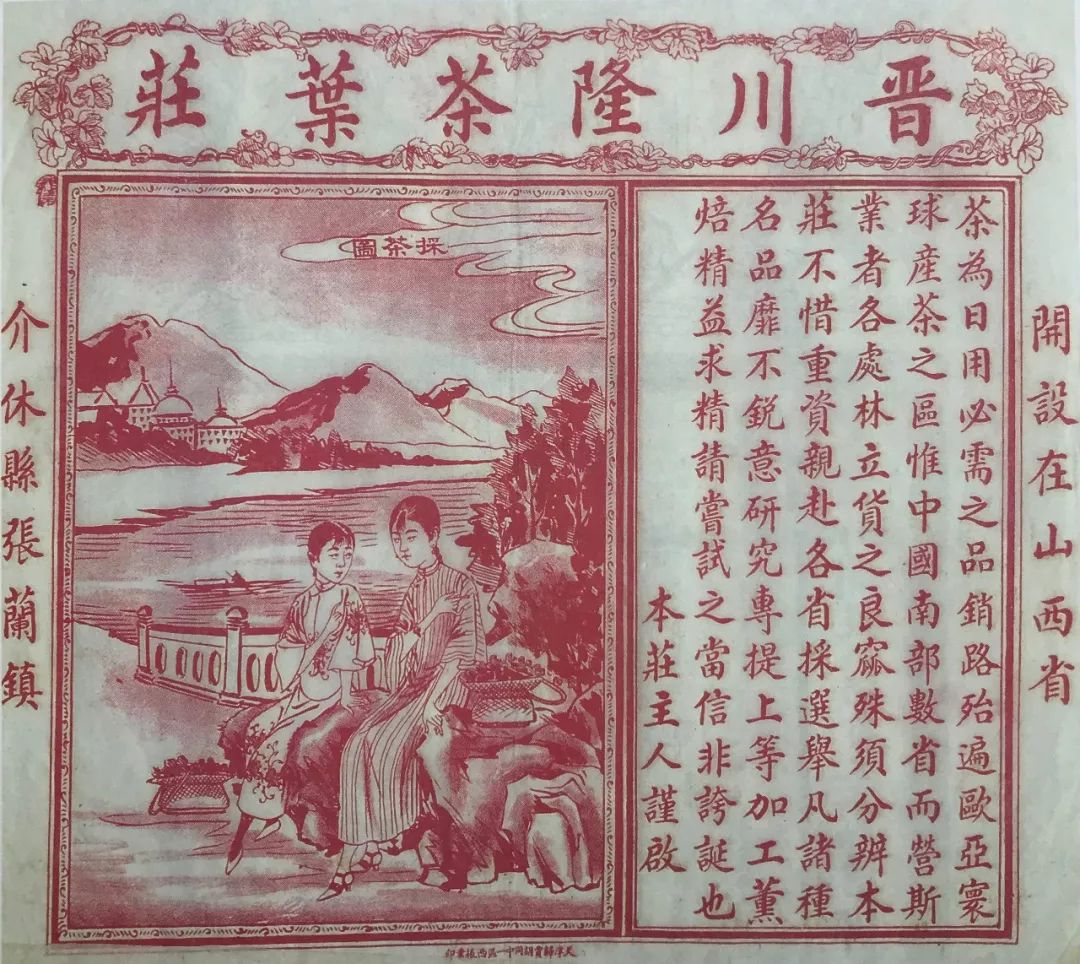 晋川隆茶葉莊
開設在山西省
茶為日用必需之品銷路殆遍歐亞寰
球産茶之區惟中國南部數省而營斯
業者各處林立貨之良窳殊須分辨本
莊不惜重資親赴各省採選舉凡諸種
名品靡不銳意研究專提上等加工薰
焙精益求精請嘗試之當信非誇誕也
本莊主人謹啟
採茶圖
介休縣張蘭鎮